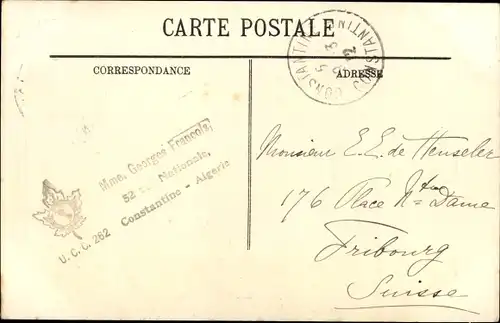 CARTE POSTALE
CORRESPONDANCE
ADRESSE
CONSTANTINE CONSTANTINE
Mme. Georges Francolz,
52 Nationale,
Constantine - Algerie
U. C. C. 262
Monsieur E. E. de Henseler
176 Place Nte Dame
Fribourg
Suisse